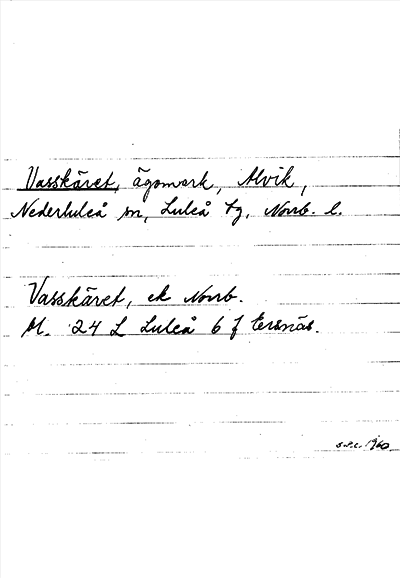 Vasskäret, ägomark, Alvik,
Nederluleå sn, Luleå tg, Norrb. l.
Vasskäret, ek Norrb.
M. 24 L Luleå 6 f Ersnäs.
1960